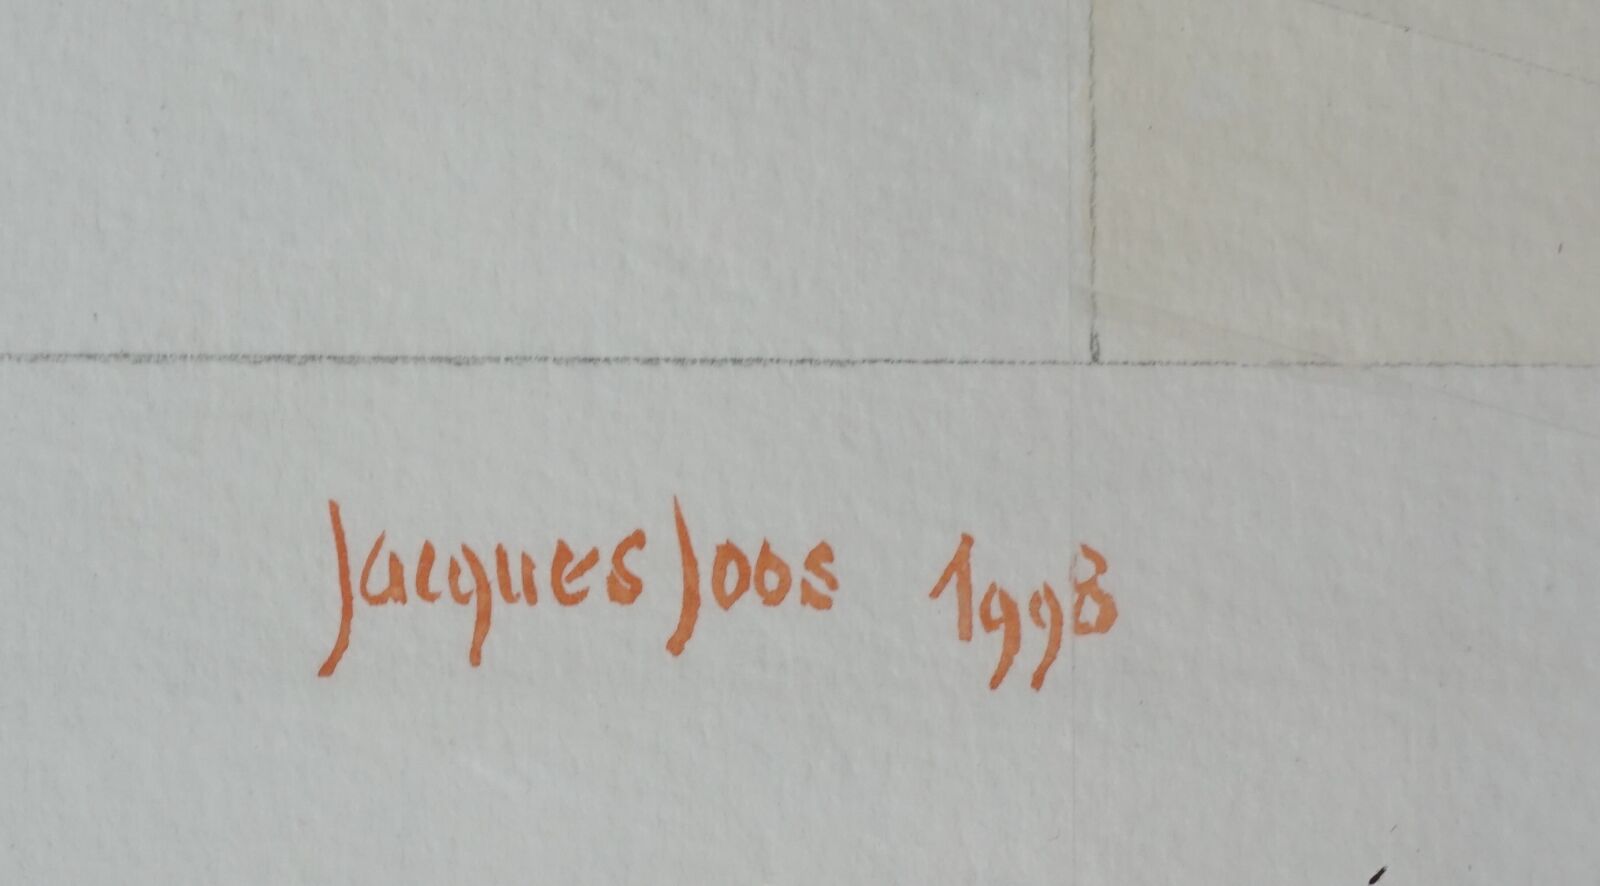 Jacques Joos 1998